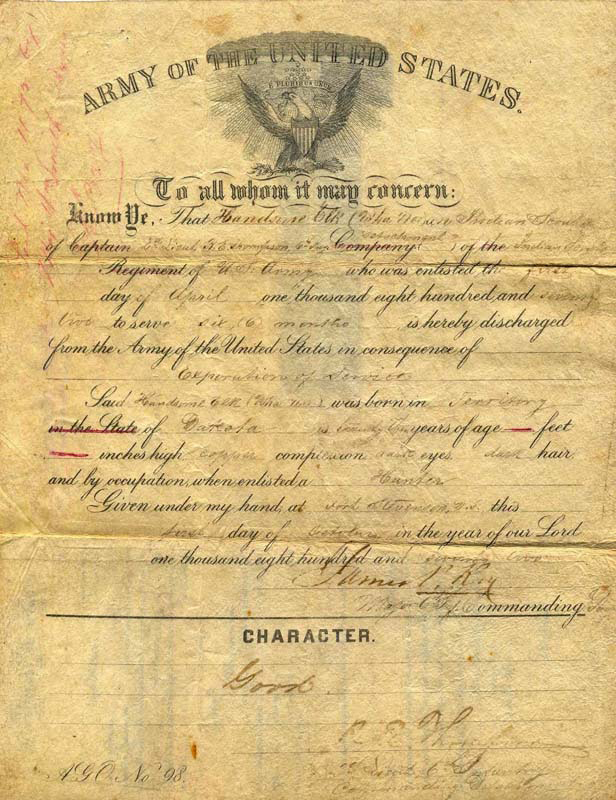 ARMY OF THE UNITED STATES.
E PLURIBUS UNUM
To all whom it may concern:
Know Ye, That Handsome Elk
of Captain 2d Lieut. R. E. Thompson, 6th Inf. Company of the Indian Scouts
Regiment of U.S. Army who was enlisted the first
day of April one thousand eight hundred and seventy
two to serve six (6) months is hereby discharged
from the Army of the United States in consequence of
Expiration of Service
Said Handsome Elk was born in Territory
in the State of Dakota is years of age feet
inches high Copper complexion eyes, dark hair
and by occupation, when enlisted a Hunter
Given under my hand, at Fort Stevenson, D.T. this
first day of October in the year of our Lord
one thousand eight hundred and seventy two
Major Commanding
CHARACTER.
Good.
R. E. Thompson
2d Lieut 6th Infantry
Commanding
A.G.O. No. 98.